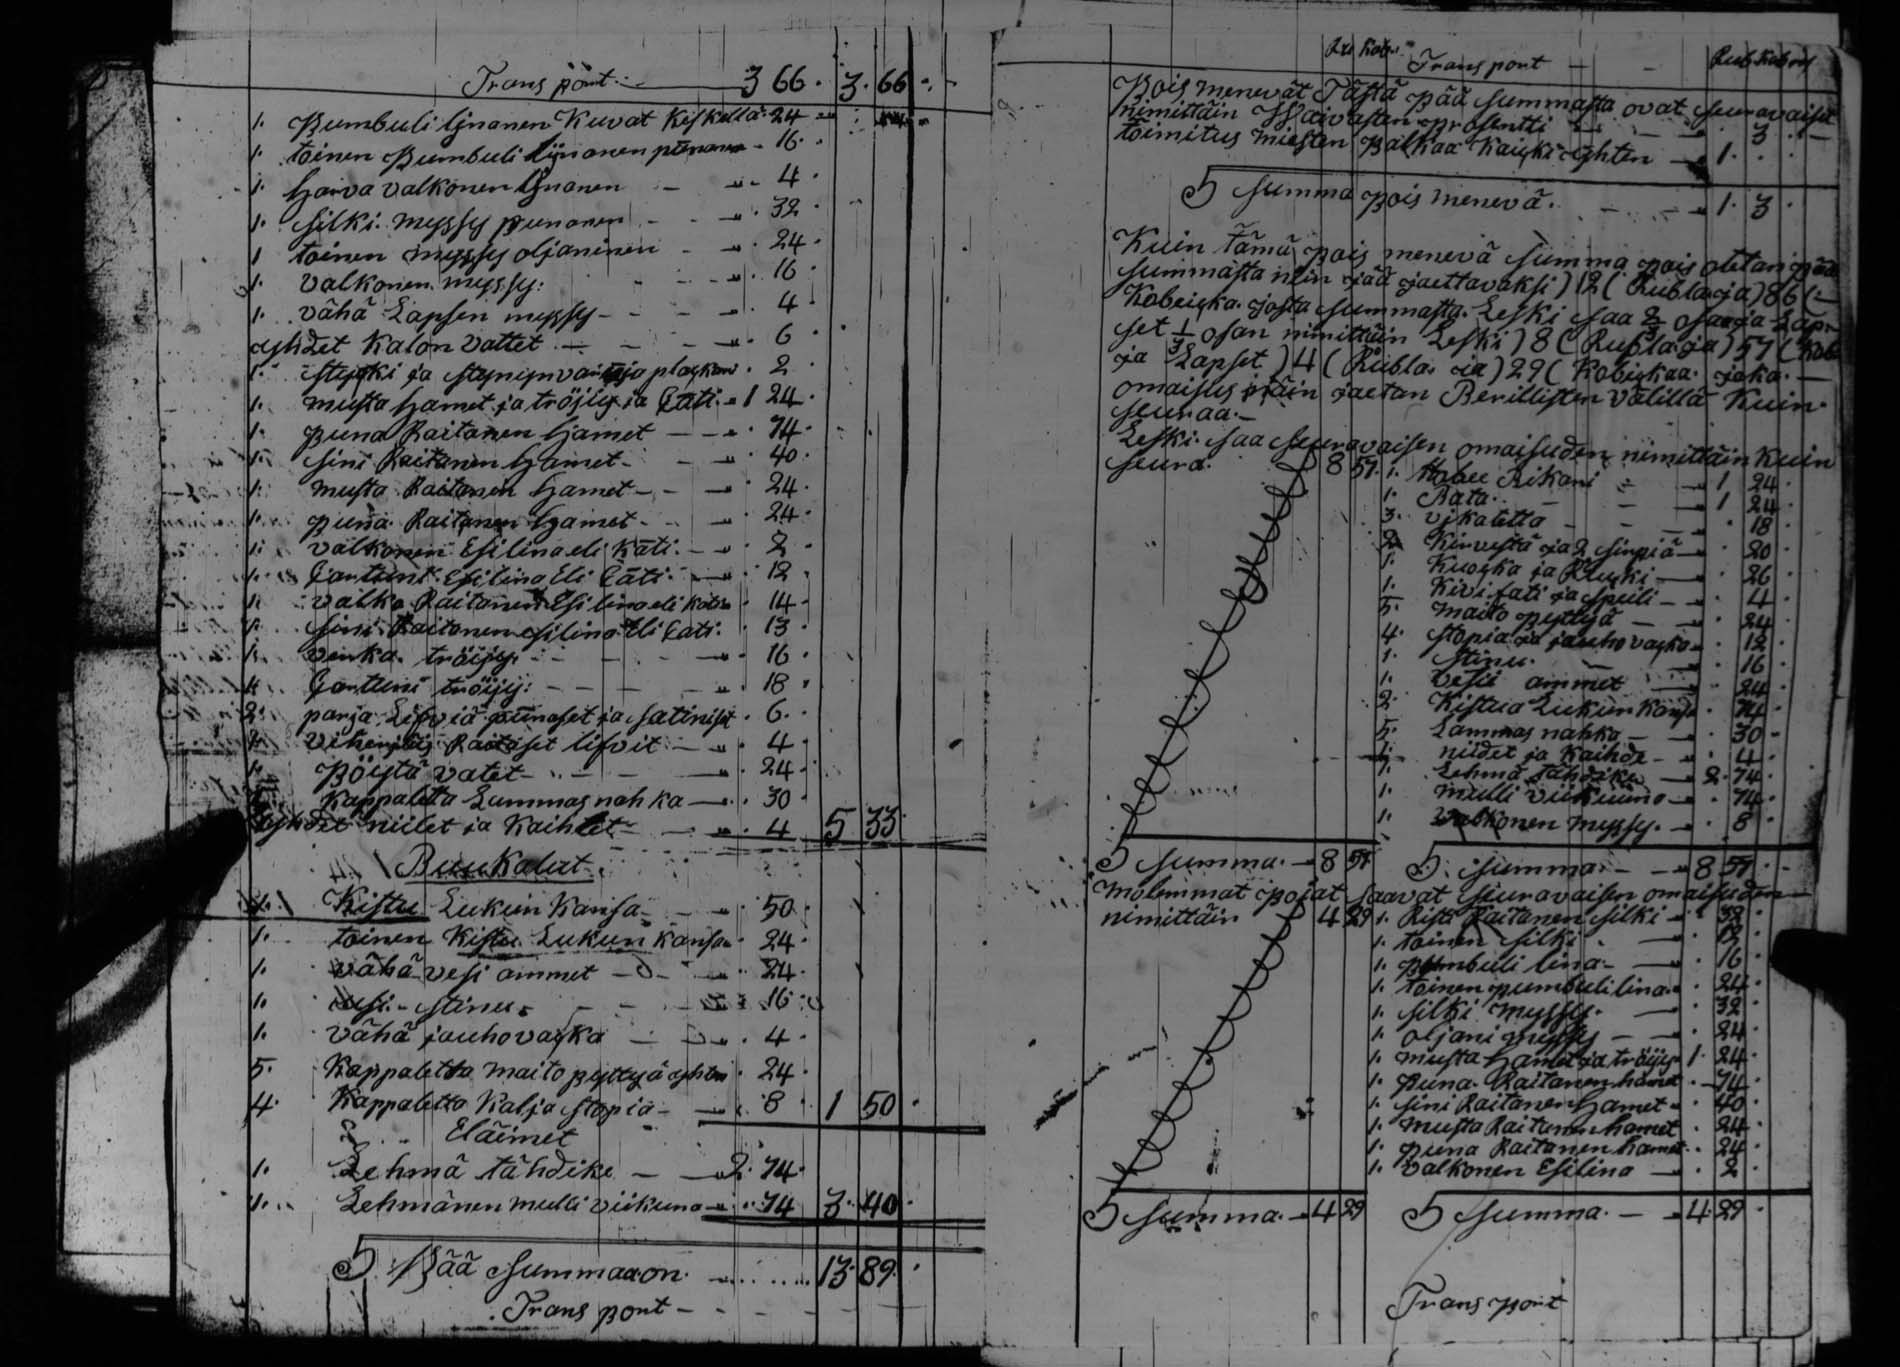 Transport. 3 66. 3. 66.
1. Pumbuli lijnanen Kuvat Keskellä. 24
1. toinen Pumbuli lijnanen punanen 16.
1. harva valkonen lijnanen 4.
1. silki. myssy punanen 32.
1 toinen myssy oljaninen 24.
1. valkonen myssy: 16
1. vähä Lapsen myssy 4.
yhdet Kalon vattet 6.
1. 2.
1. musta hamet ja tröijy ja Eäti. 1 24.
1. puna Raitanen hamet 74.
1. sini Raitanen hamet 40.
1. musta Raitanen hamet 24.
1. puna Raitanen hamet 24.
1. valkonen Esilina eli Käti. 2.
1. Cartuni Esilina Eli Eäti. 12
1. valko Raitanen Esilina eli Käti 14.
1. sini Raitanen esilina Eli Eäti. 13
1. verka. tröijy. 16
1. Cartuni tröijy: 18
2. parja Lifviä punaset ja satiniset 6.
1. Raitaset lifvit 4.
1. Pöytä vatet 24.
5. Kappaletta Lammas nahka 30.
yhdet niilet ja Kaihtet 4 5 33.
Puukalut.
1. Kistu Lukun Kansa 50.
1. toinen Kistu Lukun Kansa 24.
1. vähä vesi ammet 24.
1. vesi stinu. 16.
1. vähä jauhovaska 4.
5. Kappaletta maito pyttyjä yhten 24.
4. Kappaletta Kalja stopia 8 1 50.
Eläimet
1. Lehmä tähdike 2. 74.
1. Lehmänen mulli viikuna 74 3. 40.
S Pää Summa on. 13. 89.
Transport
Rub Kob. Transport Rub Kob
Pois menevät Tästä pää summasta ovat seuravaiset
nimittäin Waivasten prosentti 3
toimitus miesten palkaa Kaicki yhten 1.
S Summa pois menevä. 1. 3.
Kuin tämä pois menevä summa pois otetan pää
summasta niin jää jaettavaksi) 12 ( Rubla ja) 86 (:
Kobeigka. josta summasta. Leski saa 2/3 osaa ja Lap:
set 1/3 osan nimittäin Leski) 8 ( Rubla ja) 57 ( Kob
ja Lapset) 4 ( Rubla ja) 29 ( Kobigkaa. joka.
omaisus näin jaetan Perillisten välillä Kuin
seuraa.
Leski saa seuravaisen omaisuden nimittäin Kuin
seura. 8 57. 1. Rikoni 1 24.
1. Rata. 1 24.
3. vikatetta 18
2 Kirvestä ja 2 sirpiä 20
1. ja 26
1. Kivi fati ja speili 4
5. Maito pyttyjä 24
4. stopia ja jauho vaska 12
1. stinu. 16
1. vesi ammet 24
2. Kistua Lukun Kansa 74
5. Lammas nahka 30
1. niidet ja Kaihde 4
1. Lehmä tähdike 2. 74.
1. Mulli viikuuno 74.
1. valkonen myssy. 8
S summa. 8 57 S. summa. 8 57.
Molemmat pojat saavat seuravaisen omaisuden
nimittäin 4 29 1. Risti Raitanen silki 32
1. toinen silki 12
1. pumbuli lina 16
1. toinen pumbuli lina 24
1. silki myssy. 32
1. oljani myssy 24
1. musta hamet ja tröijy 1. 24.
1. puna Raitanen hamet 74.
1. sini Raitanen hamet 40
1. musta Raitanen hamet 24
1. puna Raitanen hamet 24
1. valkonen Esilina 2.
S summa. 4 29 S summa. 4. 29.
Transport